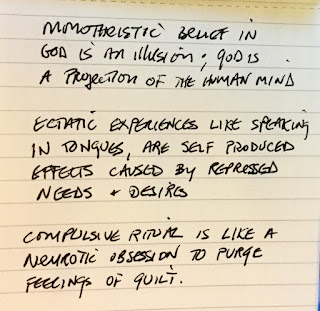 MONOTHEISTIC BELIEF IN
GOD IS AN ILLUSION; GOD IS
A PROJECTION OF THE HUMAN MIND
ECTATIC EXPERIENCES LIKE SPEAKING
IN TONGUES, ARE SELF PRODUCED
EFFECTS CAUSED BY REPRESSED
NEEDS + DESIRES
COMPULSIVE RITUAL IS LIKE A
NEUROTIC OBSESSION TO PURGE
FEELINGS OF GUILT.